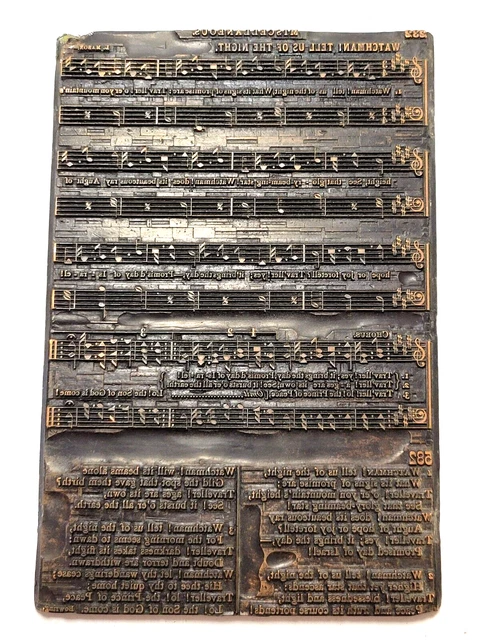 MISCELLANEOUS.
WATCHMAN! TELL US OF THE NIGHT.
L. MASON.
1. Watchman, tell us of the night, What its signs of promise are: Trav'ller! o'er yon mountain's
height, See that glo-ry-beam-ing star. Watchman! does its beauteous ray Aught of
hope or joy foretell? Trav'ller! yes; it brings the day,—Promis'd day of Is-ra-el!
CHORUS. 1 2 3
1. Trav'ller! yes; it brings the day, Promis'd day of Is-ra-el.
2. Trav'ller! a-ges are its own; See! it bursts o'er all the earth.
3. Trav'ller! lo! the Prince of Peace, (Omit) Lo! the Son of God is come!
WATCHMAN! tell us of the night,
What its signs of promise are;
Traveller! o'er yon mountain's height,
See that glory-beaming star.
Watchman! does its beauteous ray
Aught of hope or joy foretell?
Traveller! yes; it brings the day,
Promised day of Israel.
2 Watchman! tell us of the night,
Higher yet that star ascends;
Traveller! blessedness and light,
Peace, and truth its course portends.
Watchman! will its beams alone
Gild the spot that gave them birth?
Traveller! ages are its own,
See! it bursts o'er all the earth.
3 Watchman! tell us of the night,
For the morning seems to dawn;
Traveller! darkness takes its flight,
Doubt and terror are withdrawn.
Watchman! let thy wanderings cease;
Hie thee to thy quiet home;
Traveller! lo! the Prince of Peace,
Lo! the Son of God is come. Bowring.